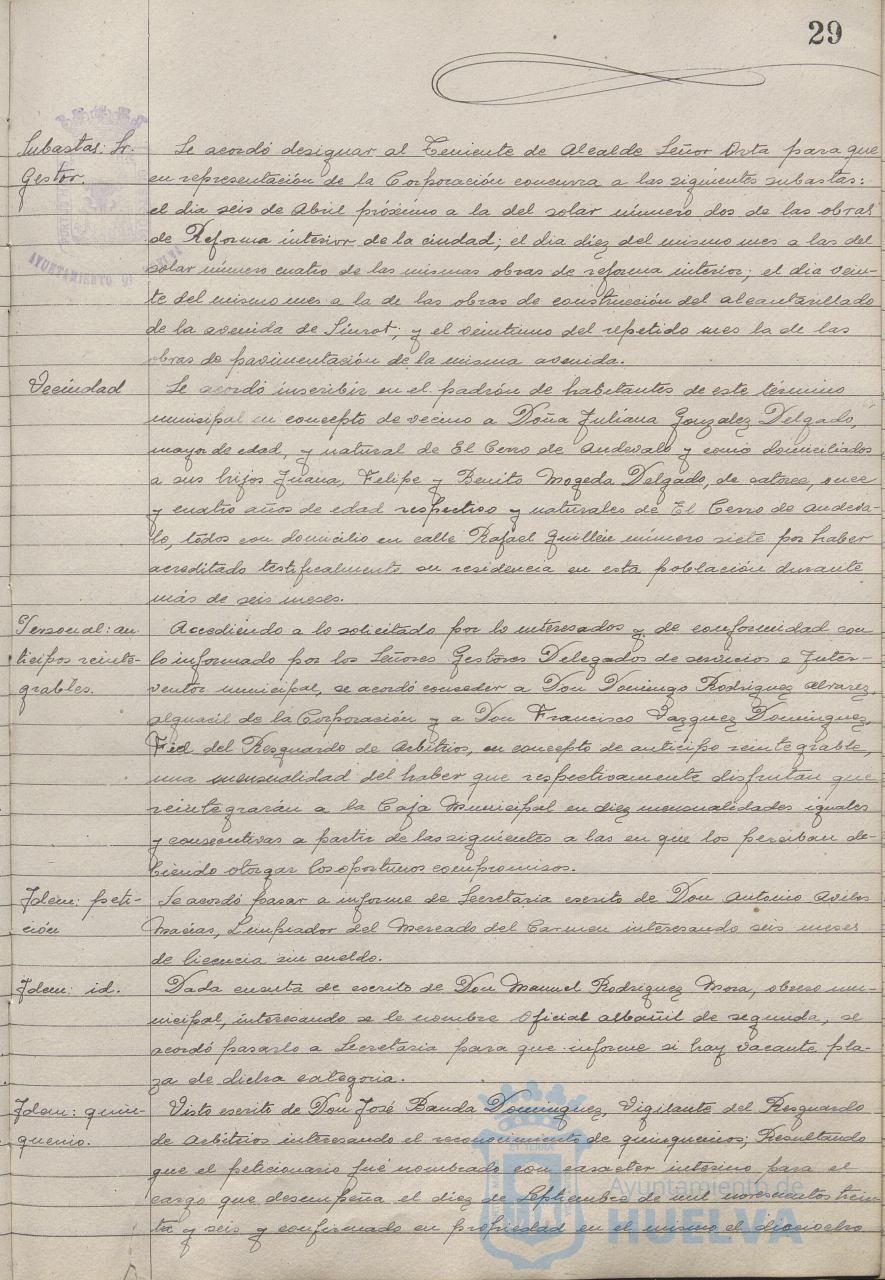 29
Subastas: Sr.
Gestor.
Se acordó designar al Teniente de Alcalde Señor Orta para que
en representación de la Corporación concurra a las siguientes subastas:
el dia seis de Abril próximo a la del solar número dos de las obras
de Reforma interior de la ciudad; el dia diez del mismo mes a las del
solar número cuatro de las mismas obras de reforma interior; el dia vein-
te del mismo mes a la de las obras de construcción del alcantarillado
de la avenida de y el veintiuno del repetido mes la de las
obras de pavimentación de la misma avenida.
Vecindad
Se acordó inscribir en el padrón de habitantes de este término
municipal en concepto de vecino a Doña Juliana Gonzalez Delgado,
mayor de edad, y natural de El Cerro de Andevalo y como domiciliados
a sus hijos Juana, Felipe y Benito Mogeda Delgado, de catorce, once
y cuatro años de edad respectivo y naturales de El Cerro de Andeva-
lo, todos con domicilio en calle Rafael Guillén número siete por haber
acreditado testificalmente su residencia en esta población durante
más de seis meses.
Personal: an
ticipos reinte-
grables.
Accediendo a lo solicitado por lo interesados y de conformidad con
lo informado por los Señores Gestores Delegados de servicios e Inter-
ventor municipal, se acordó conceder a Don Domingo Rodriguez Alvarez,
alguacil de la Corporación y a Don Francisco Vazquez Dominguez,
Fiel del Resguardo de Arbitrios, en concepto de anticipo reintegrable,
una mensualidad del haber que respectivamente disfrutan que
reintegrarán a la Caja Municipal en diez mensualidades iguales
y consecutivas a partir de las siguientes a las en que los perciban de-
biendo otorgar los oportunos compromisos.
Idem: peti-
ción
Se acordó pasar a informe de Secretaria escrito de Don Antonio Aviles
Macias, Limpiador del Mercado del Carmen interesando seis meses
de licencia sin sueldo.
Idem: id.
Dada cuenta de escrito de Don Manuel Rodriguez Mora, obrero mu-
nicipal, interesando se le nombre Oficial albañil de segunda, se
acordó pasarlo a Secretaria para que informe si hay vacante pla-
za de dicha categoria.
Idem: quin-
quenio.
Visto escrito de Don José Banda Dominguez, Vigilante del Resguardo
de Arbitrios interesando el reconocimiento de quinquenios; Resultando
que el peticionario fué nombrado con caracter interino para el
cargo que desempeña el diez de Septiembre de mil novecientos trein-
ta y seis y confirmado en propiedad en el mismo el dieciocho
Ayuntamiento de
HUELVA